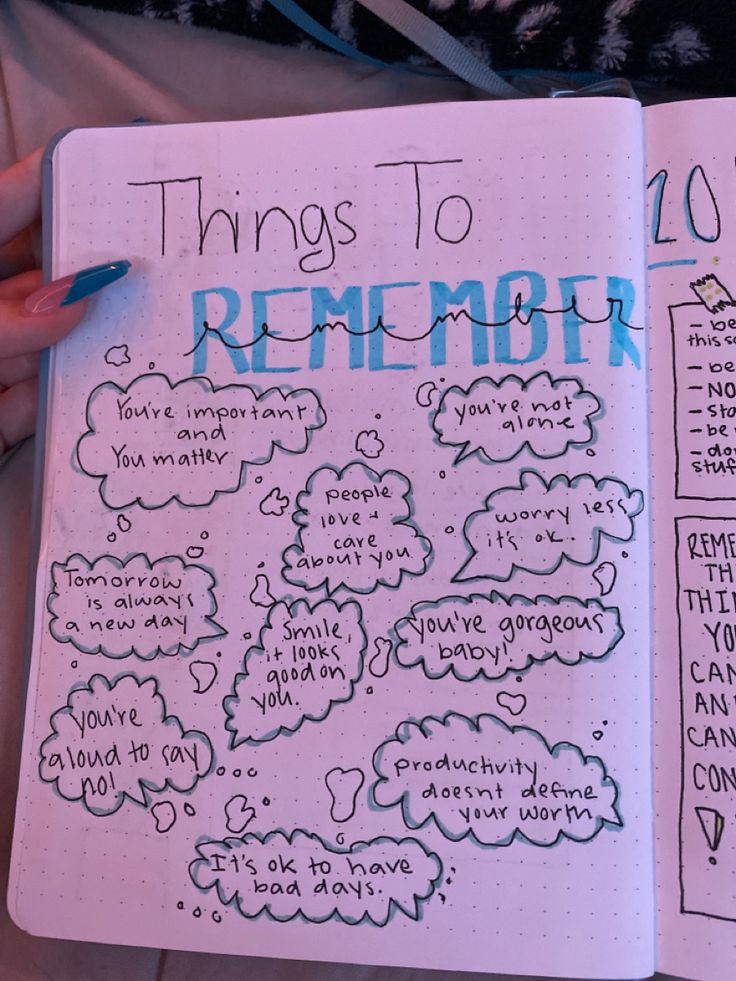 Things To
REMEMBER
remember
You're important
and
You matter
you're not
alone
people
love +
care
about you
worry less
it's ok.
Tomorrow
is always
a new day
Smile,
it looks
good on
you.
you're gorgeous
baby!
you're
aloud to say
no!
productivity
doesnt define
your worth
It's ok to have
bad days.
10
- be
this sc
- be
- NO
- sta
- be
- do
stuf
REME
TH
THI
YO
CAN
AN
CAN
CON
!